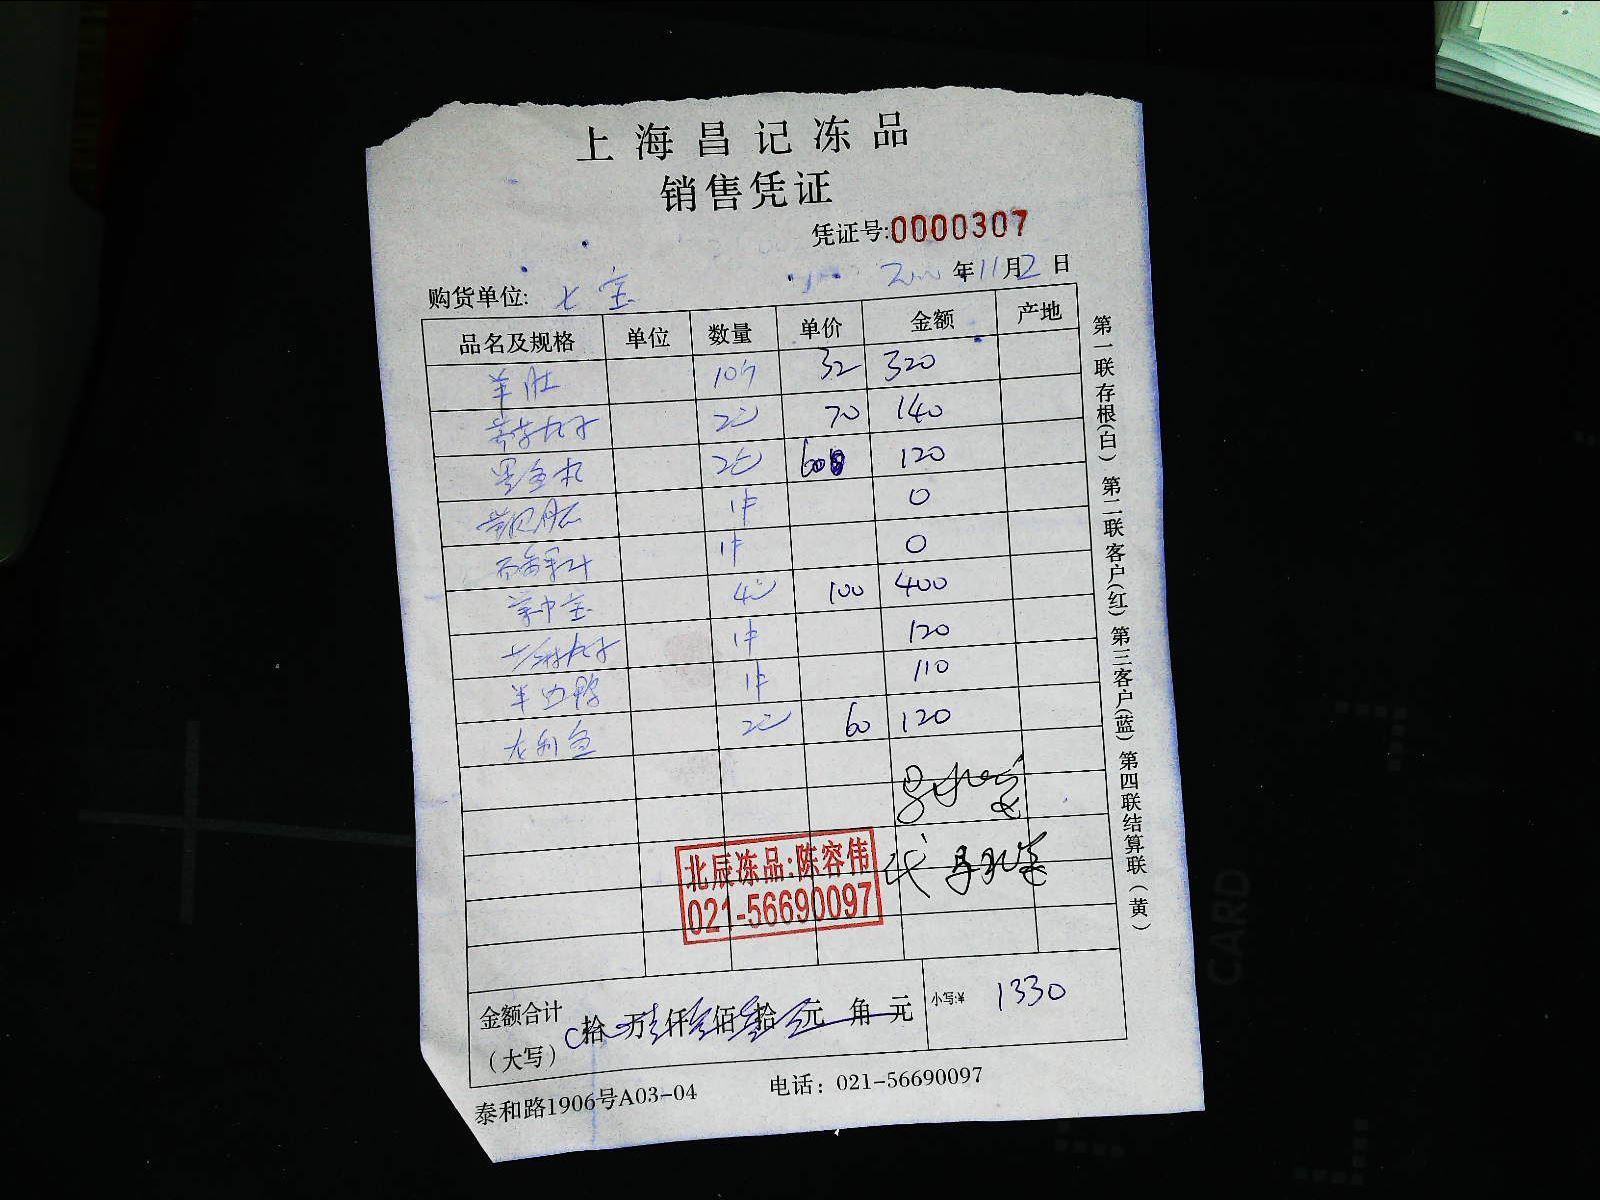 上海昌记冻品
销售凭证
凭证号:0000307
年11月2日
购货单位: 七宝
品名及规格 单位 数量 单价 金额 产地
羊肚 10个 32 320
丸子 2包 70 140
墨鱼丸 2包 600 120
1件 0
1件 0
掌中宝 4包 100 400
丸子 1件 120
半边鸭 1件 110
龙利鱼 2包 60 120
代
北辰冻品:陈容伟
021-56690097
金额合计 拾 万壹仟叁佰叁拾 元 角 元 小写:¥ 1330
(大写)
泰和路1906号A03-04 电话: 021-56690097
第一联存根(白) 第二联客户(红) 第三客户(蓝) 第四联结算联(黄)